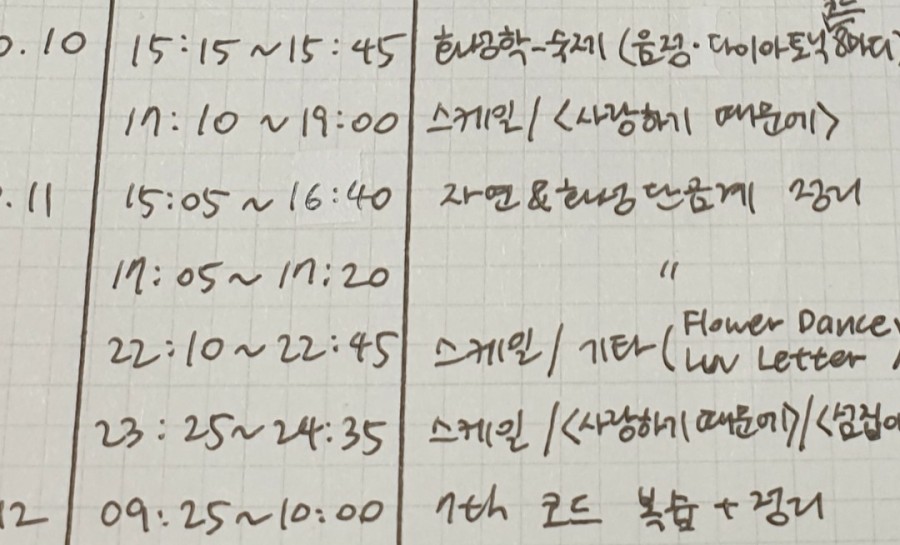 .10 15:15~15:45 화성학-숙제 (음정·다이아토닉 코드 8마디)
17:10~19:00 스케일/<사랑하기 때문에>
.11 15:05~16:40 자연&화성단음계 정리
17:05~17:20 "
22:10~22:45 스케일/기타(Flower Dance
Luv Letter)
23:25~24:35 스케일/<사랑하기 때문에>/<섬집아
12 09:25~10:00 7th 코드 복습+정리